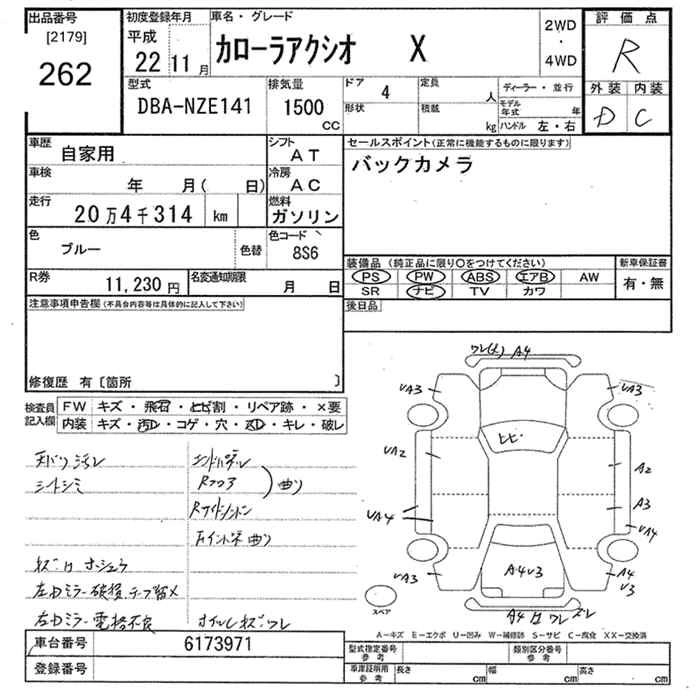 出品番号
[2179]
262
初度登録年月
平成
22 11 月
車名・グレード
カローラアクシオ X
2WD
・
4WD
評価点
R
外装 内装
D C
型式
DBA-NZE141
排気量
1500
CC
ドア 4
形状
定員 人
積載 kg
ディーラー・並行
モデル年式 年
ハンドル 左・右
車歴
自家用
シフト
AT
車検
年 月( 日)
冷房
AC
走行
20万4千314 km
燃料
ガソリン
色
ブルー
色替
色コード
8S6
R券
11,230 円
名変通知期限
月 日
セールスポイント(正常に機能するものに限ります)
バックカメラ
装備品 (純正品に限り○をつけてください)
PS PW ABS エアB AW
SR ナビ TV カワ
新車保証書
有・無
後日品
注意事項申告欄(不具合内容等は具体的に記入して下さい)
修復歴 有〔箇所 〕
検査員記入欄
FW キズ・飛石・ヒビ割・リペア跡・×要
内装 キズ・汚れ・コゲ・穴・スレ・キレ・破レ
天バリ汚レ
シートシミ
エンドパネル
Rフロア
曲り
Rサイドシメンバー
左インナー曲り
左ドアミラー破損テープ留メ
左ドアミラー電格不良
ワレ(大) A4
UA3
UA3
ヒビ
UA2
A2
A3
UA4
UA4
UA3
A4U3
A4
U3
A4 ワレ ズレ
スペア
A-キズ E-エクボ U-凹み W-補修跡 S-サビ C-腐食 XX-交換済
車台番号
6173971
登録番号
型式指定番号
参考
類別区分番号
参考
車庫証明用
参考
長さ cm
幅 cm
高さ cm